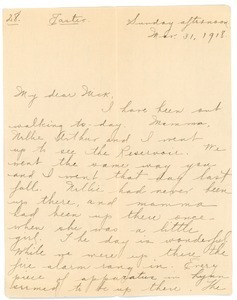 Sunday afternoon
Mar. 31, 1918
My dear Mick,
I have been out
walking to-day. Mamma,
Nellie, Arthur and I went
up to see the Reservoir. We
went the same way you
and I went that day last
fall. Nellie had never been
up there, and mamma
had been up there once
when she was a little
girl. The day is wonderful.
While we were up there the
fire alarm rang in. Every
piece of apparatus in
seemed to be up there. The